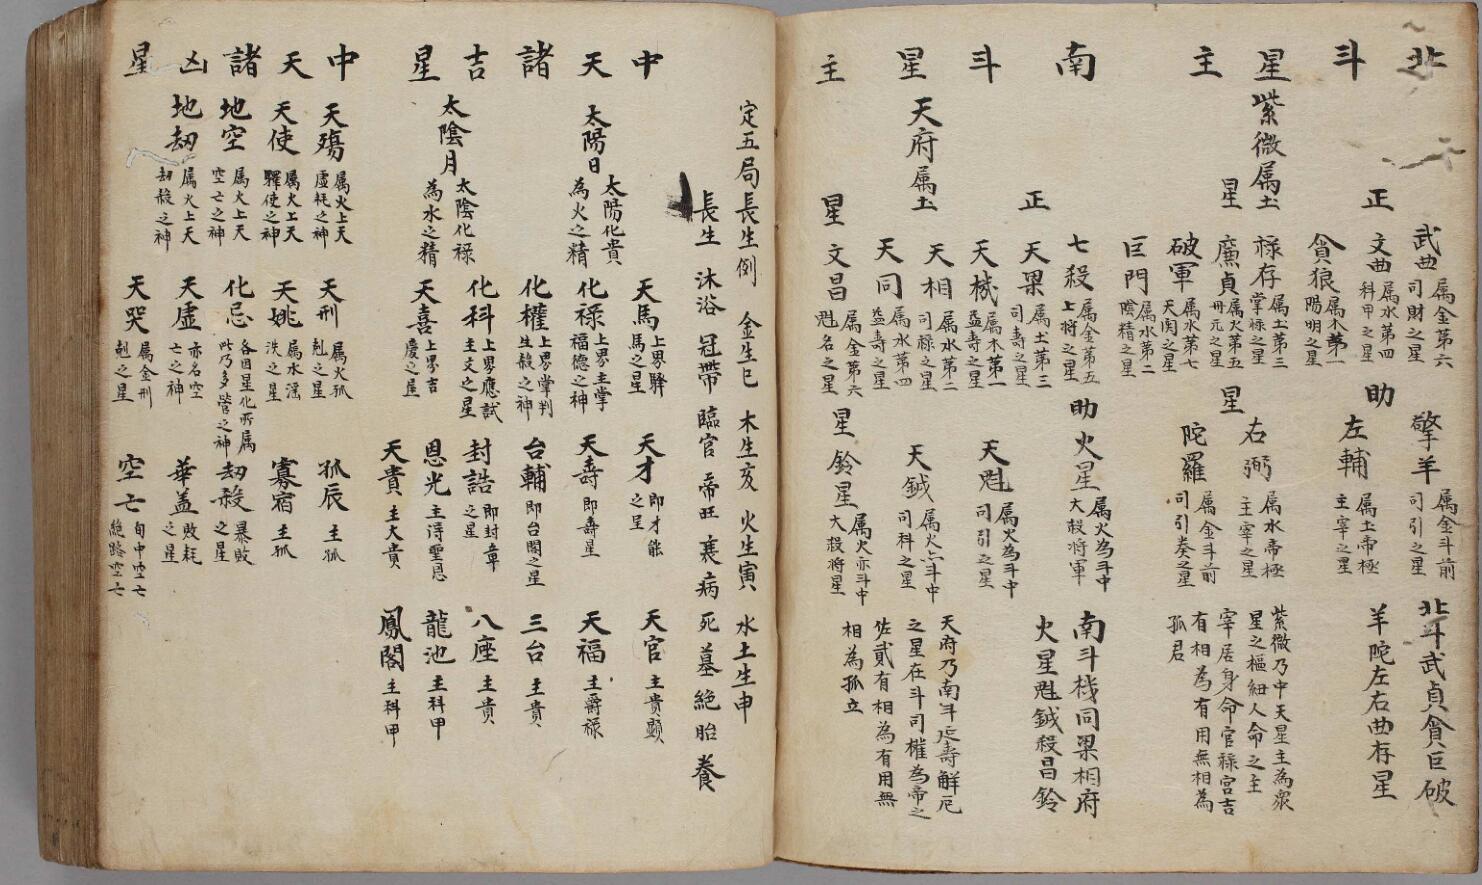 北 武曲 属金第六 司財之星 擎羊 属金斗前 司引之星 北斗武貞貪巨破
斗 正 文曲 属水第四 科甲之星 助 左輔 属土帝極 主宰之星 羊陀左右曲存星
貪狼 属木第一 陽明之星
星 紫微属土 祿存 属土第三 掌祿之星 右弼 属水帝極 主宰之星 紫微乃中天星主為衆
星之樞紐人命之主
主 星 廉貞 属火第五 丹元之星 星 陀羅 属金斗前 司引奏之星 宰居身命官祿宮吉
破軍 属水第七 天関之星 有相為有用無相為
巨門 属水第二 陰精之星 孤君
南 七殺 属金第五 上將之星 助 火星 属火為斗中 大殺將軍 南斗机同梁相府
正 天梁 属土第三 司壽之星 火星魁鉞殺昌鈴
斗 天機 属木第一 益壽之星 天魁 属火為斗中 司引之星
星 天府属土 天相 属水第二 司祿之星 天鉞 属火亦斗中 司科之星 天府乃南斗延壽解厄
之星在斗司權為帝之
天同 属水第四 益壽之星 佐貳有相為有用無
主 星 文昌 属金第六 魁名之星 星 鈴星 属火亦斗中 大殺將星 相為孤立
定五局長生例 金生巳 木生亥 火生寅 水土生申
長生 沐浴 冠帶 臨官 帝旺 衰病 死墓絕胎養
中 天馬 上界驛馬之星 天才 即才能之星 天官 主貴顯
天 太陽日 太陽化貴 為火之精 化祿 上界主掌福德之神 天壽 即壽星 天福 主爵祿
諸 化權 上界掌判生殺之神 台輔 即台閣之星 三台 主貴
吉 化科 上界應試主文之星 封誥 即封章之星 八座 主貴
星 太陰月 太陰化祿 為水之精 天喜 上界吉慶之星 恩光 主淂聖恩 龍池 主科甲
天貴 主大貴 鳳閣 主科甲
中 天殤 属火上天虛耗之神 天刑 属火孤剋之星 孤辰 主孤
天 天使 属火上天驛使之神 天姚 属水淫泆之星 寡宿 主孤
諸 地空 属火上天空亡之神 化忌 各因星化所属此乃多管之神 劫殺 暴敗之星
凶 地劫 属火上天劫殺之神 天虛 亦名空亡之神 華盖 敗耗之星
星 天哭 属金刑剋之星 空亡 旬中空亡 絕路空亡